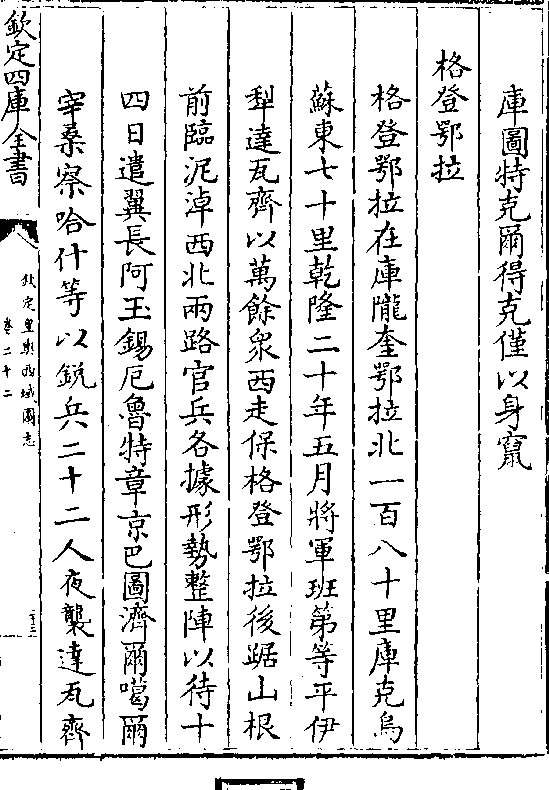 庫圖特克爾得克僅以身竄
格登鄂拉
格登鄂拉在庫隴奎鄂拉北一百八十里庫克烏
蘇東七十里乾隆二十年五月將軍班第等平伊
犁達瓦齊以萬餘衆西走保格登鄂拉後踞山根
前臨泥淖西北兩路官兵各據形勢整陣以待十
四日遣翼長阿玉錫厄魯特章京巴圖濟爾噶爾
宰桑察哈什等以銳兵二十二人夜襲達瓦齊
欽定四庫全書
欽定皇輿西域圖志
卷二十二
二十三